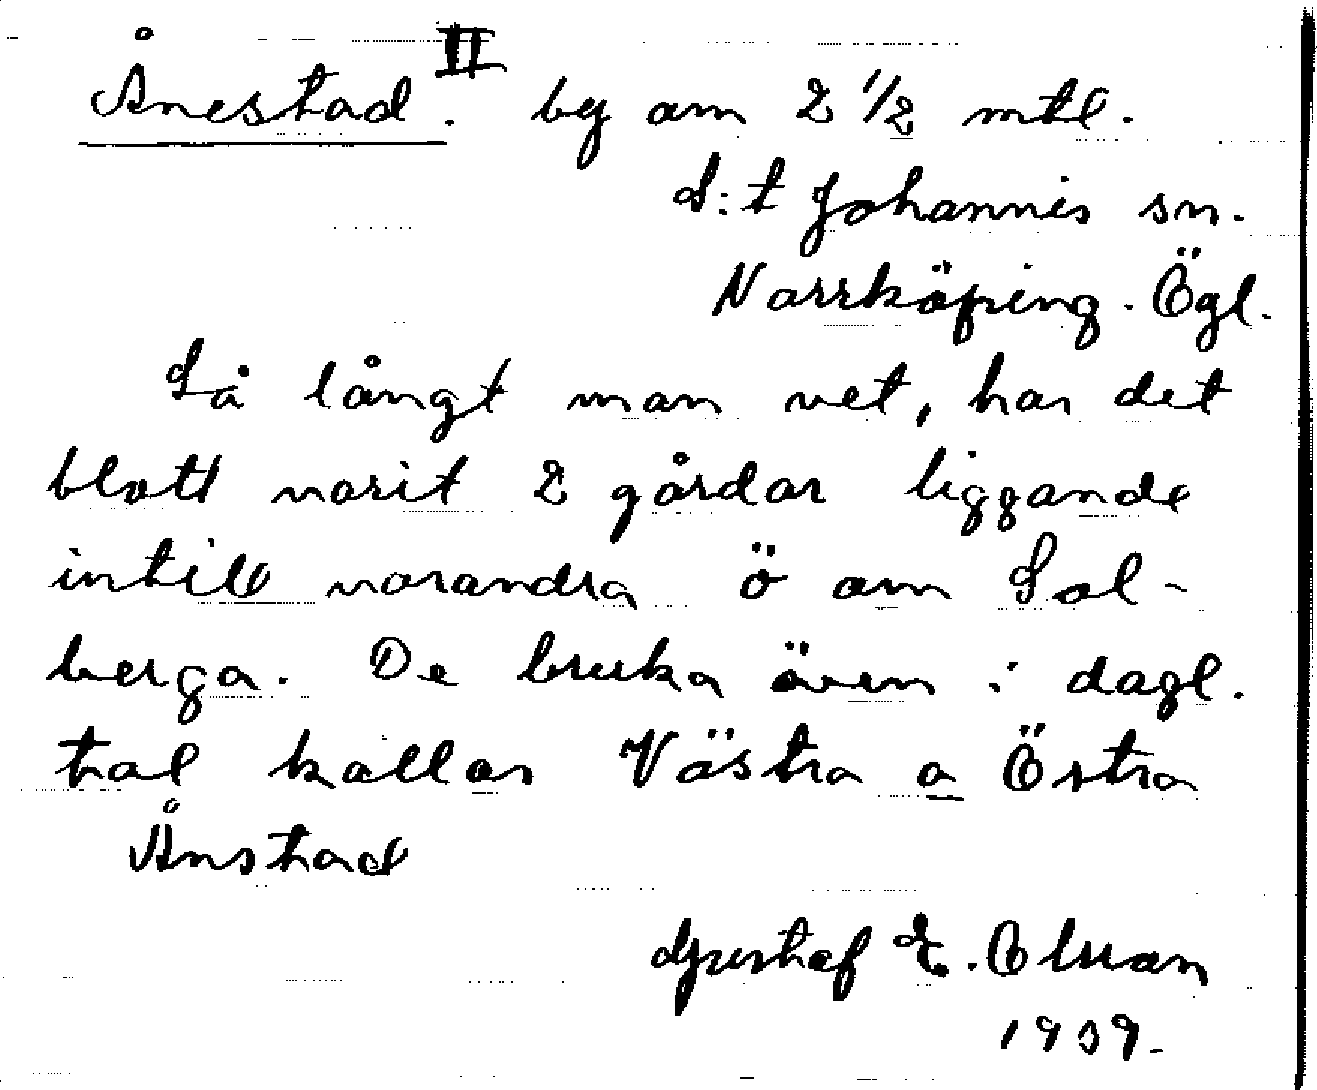 Ånestad II. by om 2 1/2 mtl.
S:t Johannis sn.
Norrköping. Ögl.
Så långt man vet, har det
blott varit 2 gårdar liggande
intill varandra ö om Sol-
berga. De bruka även i dagl.
tal kallas Västra o Östra
Ånstad
Gustaf E.
1939.